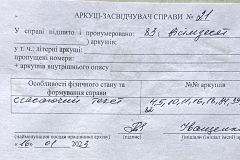 АРКУШ-ЗАСВІДЧУВАЧ СПРАВИ № 21
У справі підшито і пронумеровано: 83. Вісімдесят
) аркушів,
у т. ч. літерні аркуші:
пропущені номери:
+ аркушів внутрішнього опису
Особливості фізичного стану та формування справи
№№ аркушів
текст
4,5,10,11,16,18,
(підпис)
Іващенко
"16" 01 2023